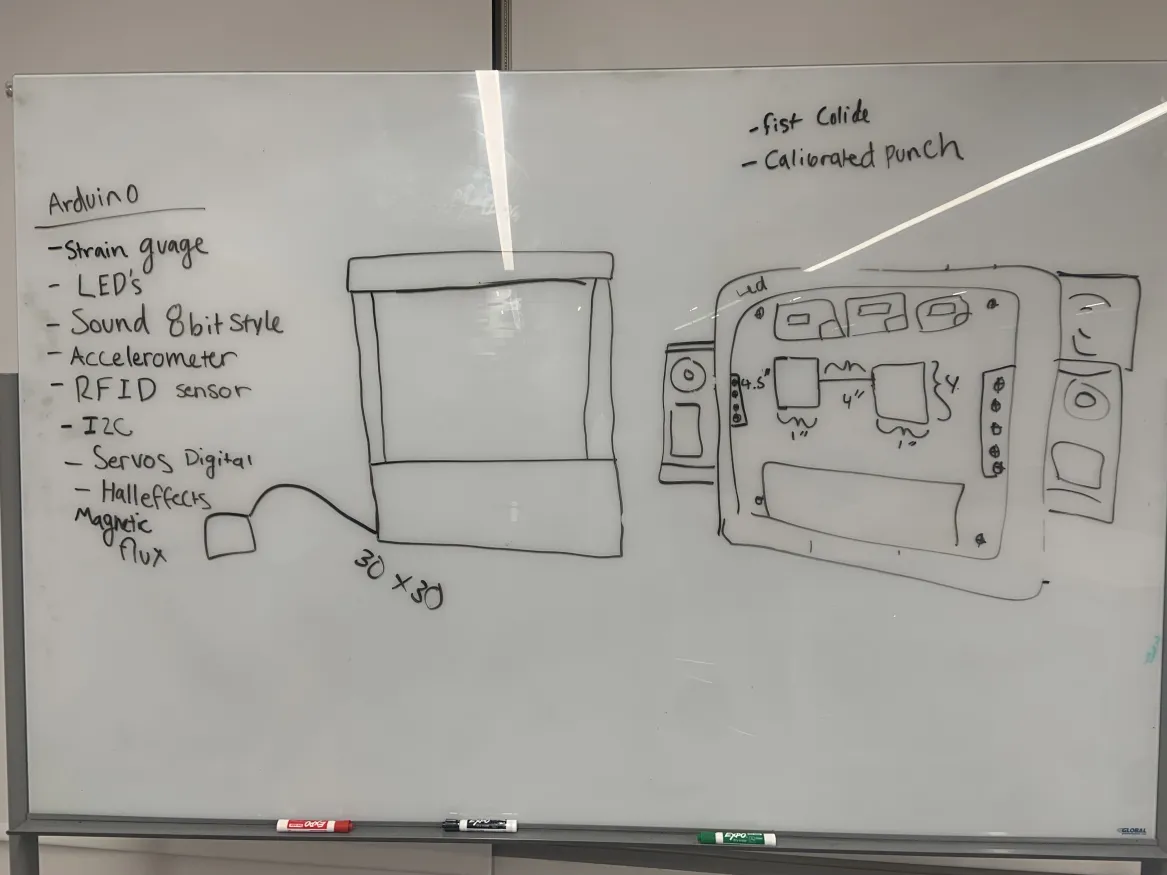 Arduino
- Strain guage
- LED's
- Sound 8bit Style
- Accelerometer
- RFID sensor
- I2C
- Servos Digital
- Halleffects
Magnetic
flux
30 x 30
- fist Colide
- Calibrated punch
Led
4.5"
4"
4
1"
1"
EXPO
EXPO
EXPO
GLOBAL